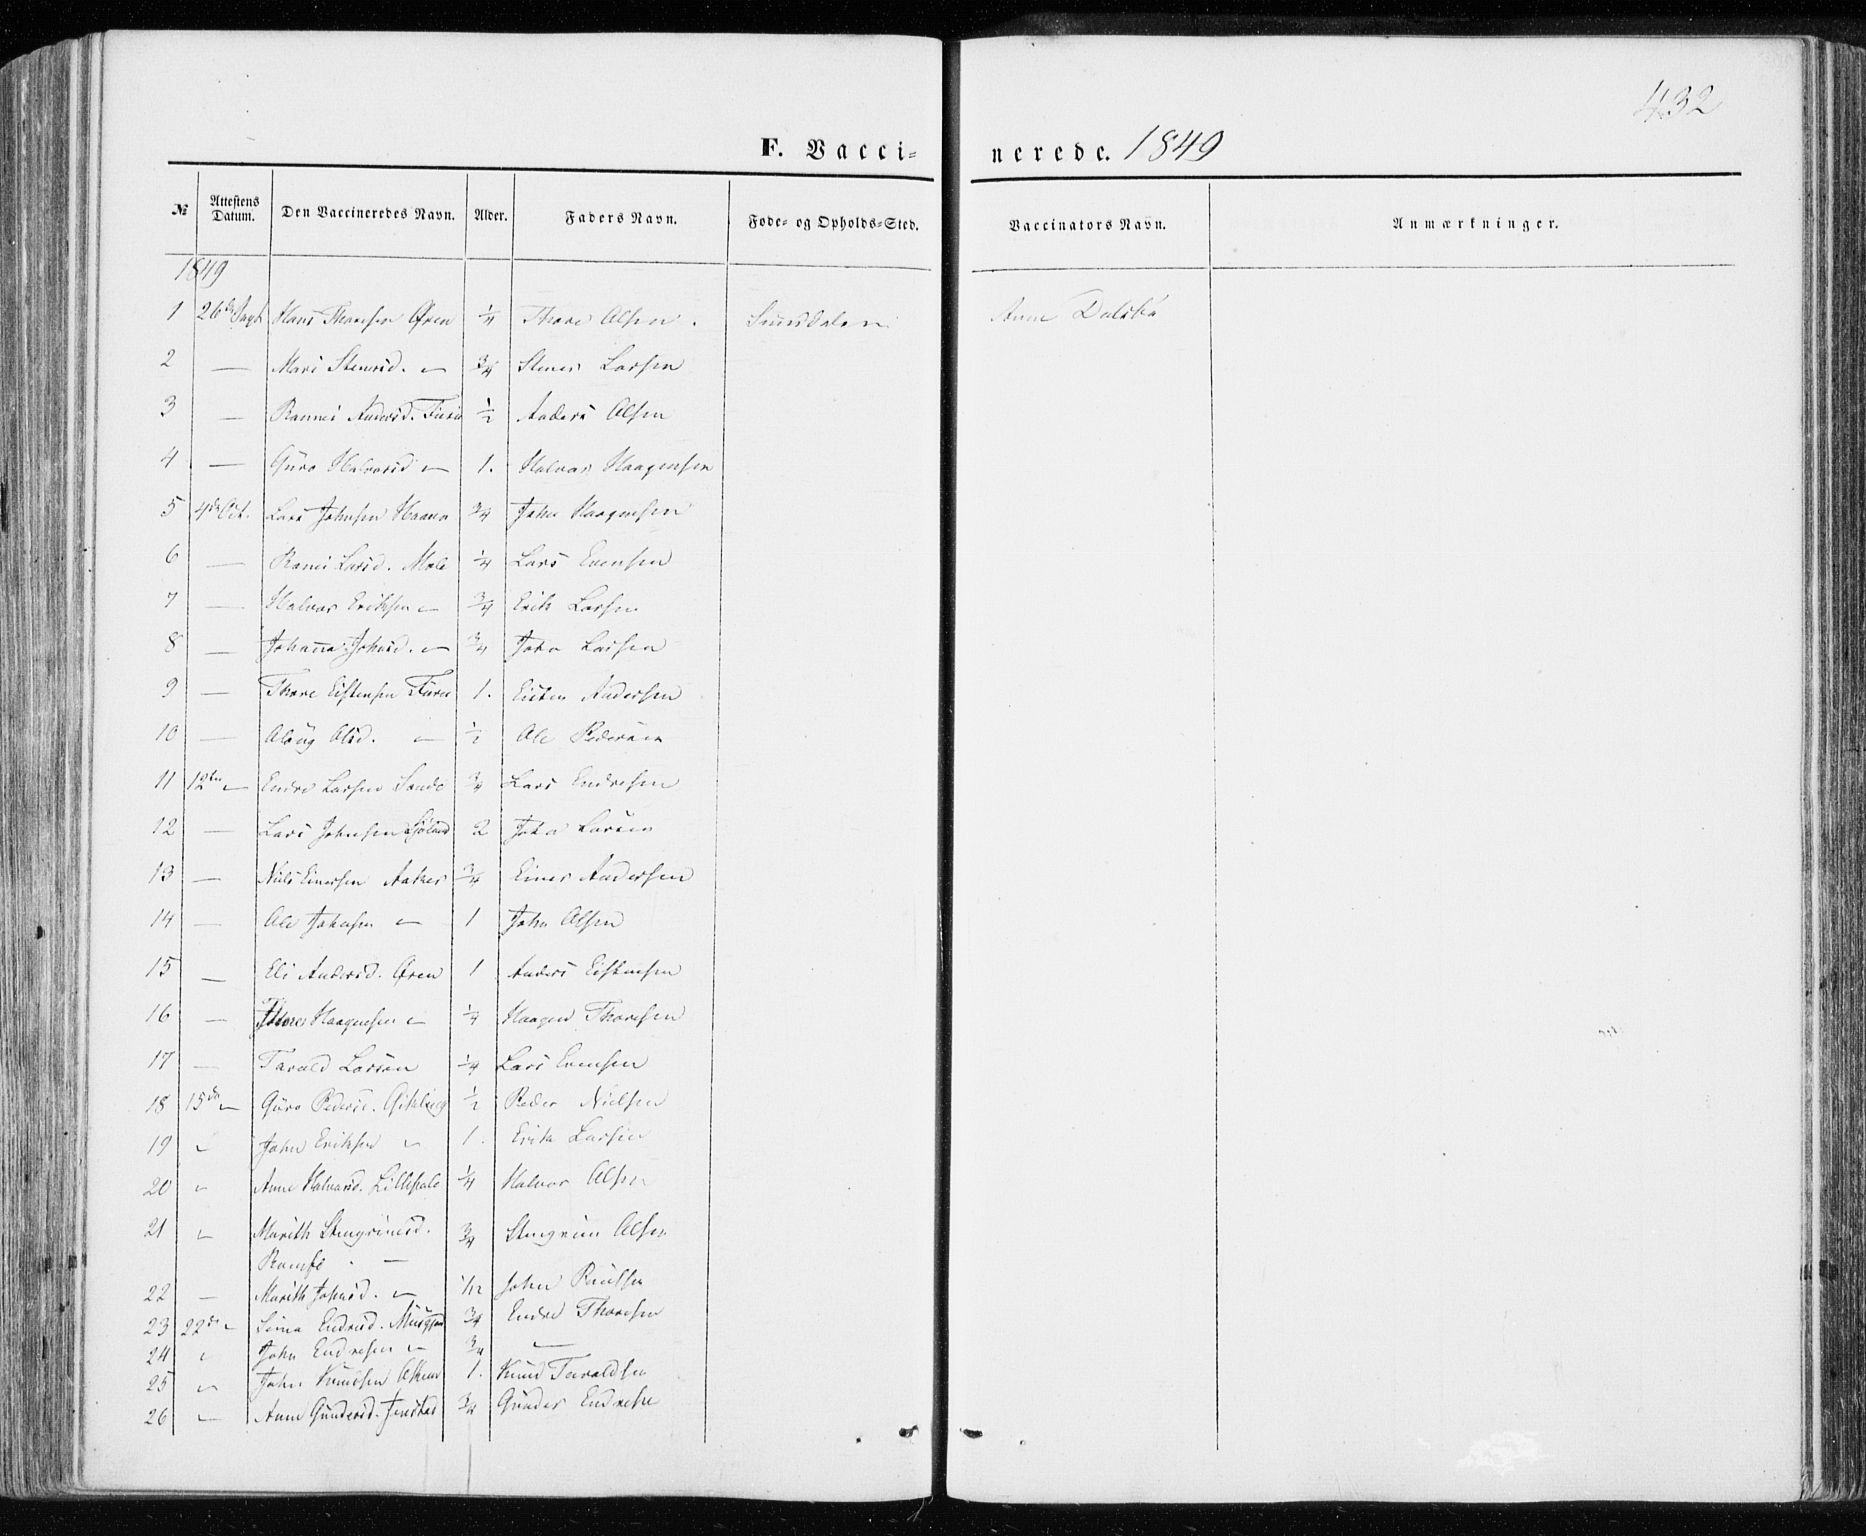 432
F. Vacci- nerede. 1849
№ Attestens Datum. Den Vaccineredes Navn. Alder. Faders Navn. Føde- og Opholds-Sted. Vaccinators Navn. Anmærkninger.
1849
1 26de Sept Hans Thoresen Øren 1/4 Thore Olsen. Sunddalen Anne Dalsbø
2 — Mari Stenersd. — 3/4 Stener Larsen
3 — Rannei Andersd. Furu 1/2 Anders Olsen
4 — Guro Halvorsd — 1. Halvor Haagensen
5 4de Oct. Lars Johnsen 3/4 John Haagensen
6 — Ranei Larsd. Mole 1/4 Lars Evensen
7 — Halvor Eriksen — 3/4 Erik Larsen
8 — Johanna Johnsd. — 3/4 John Larsen
9 — Thore Eistensen Furu 1. Eisten Andersen
10 — Olaug Olsd. — 1/2 Ole Pedersen
11 12te — Endre Larsen Sande 3/4 Lars Endresen
12 — Lars Johnsen 2 John Larsen
13 — Niels Einersen Aaker 3/4 Einer Andersen
14 — Ole Johnsen — 1 John Olsen
15 — Eli Andersd. Øren 1 Anders Eistensen
16 — Thore Haagensen — 1/4 Haagen Thoresen
17 — Tarald Larsen 1/4 Lars Evensen
18 15de — Guro Pedersd. Gikling 1/2 Peder Nielsen
19 — John Eriksen — 1. Erik Larsen
20 — Anne Halvorsd. Lilledale 1/4 Halvor Olsen
21 — Marith Stengrimsd. 3/4 Stengrim Olsen
Romfo — —
22 — Marith Johnsd. — 1/12 John Poulsen
23 22de — Endresd. 3/4 Endre Thoresen
24 — John Endresen — 3/4 —
25 — John Knudsen 1. Knud Taraldsen
26 — Anne Gundersd. Jenstad 3/4 Gunder Endresen